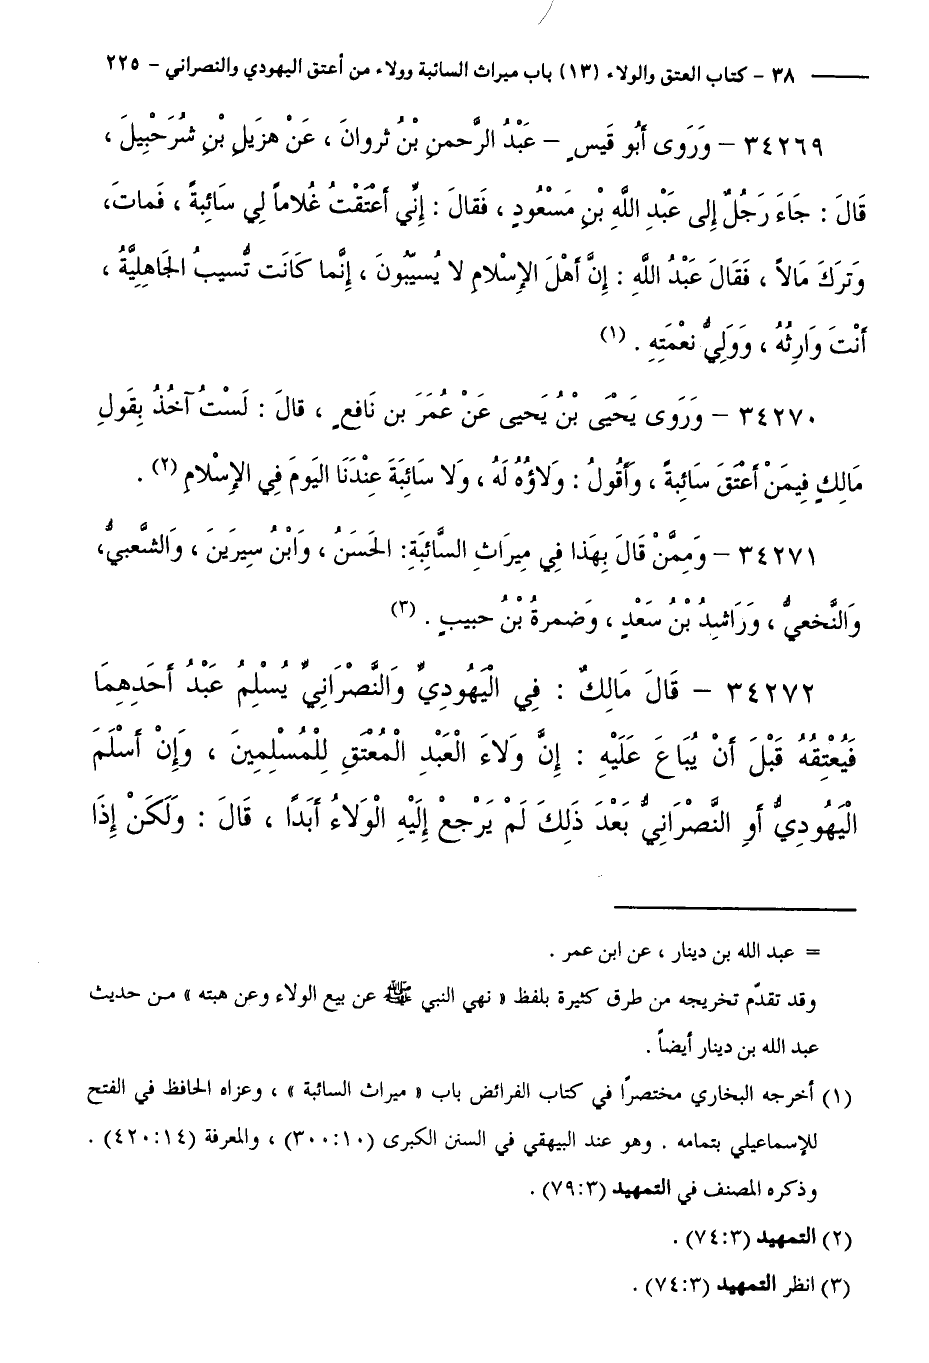 ٣٨ - كتاب العتق والولاء (١٣) باب ميراث السائبة وولاء من أعتق اليهودي والنصراني - ٢٢٥
٣٤٢٦٩ - وَرَوى أَبُو قَيسٍ - عَبْدُ الرَّحمنِ بْنُ ثروانَ ، عَنْ هزَيلِ بْنِ شُرَحْبِيلَ ،
قَالَ : جَاءَ رَجُلٌ إلى عَبْدِ اللَّهِ بْنِ مَسْعُودٍ ، فَقالَ : إِنِّي أَعْتَقْتُ غُلاماً لِي سَائِبةً ، فَماتَ،
وَتركَ مَالاً ، فَقَالَ عَبْدُ اللَّهِ : إِنَّ أَهْلَ الإِسْلامِ لا يُسَيِّبُونَ ، إِنَّما كَانَت تُسيبُ الجَاهِلِيَّةُ ،
أَنْتَ وَارِثُهُ ، وَوَلِيُّ نعْمَتِهِ . (١)
٣٤٢٧٠ - وَرَوى يَحْيَى بْنُ يَحيى عَنْ عُمَرَ بن نَافعٍ ، قالَ : لَسْتُ آخُذُ بِقَولِ
مَالِكٍ فِيمَنْ أَعْتَقَ سَائِبةً ، وَأَقُولُ : وَلاؤُهُ لَهُ ، وَلا سائِبَةَ عِنْدَنَا اليَومَ فِي الإِسْلامِ (٢) .
٣٤٢٧١ - وَمِمَّنْ قَالَ بِهَذا فِي مِيرَاثِ السَّائِبَةِ: الحَسَنُ ، وَابْنُ سِيرَينَ ، وَالشَّعبيُّ،
وَالنَّخعيُّ ، وَرَاشِدُ بْنُ سَعْدٍ ، وَضمرةُ بْنُ حبيبٍ . (٣)
٣٤٢٧٢ - قَالَ مَالِكٌ : فِي الْيَهُودِيِّ وَالنَّصْرَانِيِّ يُسْلِمُ عَبْدُ أَحَدِهِمَا
فَيُعْتِقُهُ قَبْلَ أَنْ يُبَاعَ عَلَيْهِ : إِنَّ وَلاءَ الْعَبْدِ الْمُعْتَقِ لِلْمُسْلِمِينَ ، وَإِنْ أَسْلَمَ
الْيَهُودِيُّ أَوِ النَّصْرَانِيُّ بَعْدَ ذَلِكَ لَمْ يَرْجِعْ إِلَيْهِ الْوَلاءُ أَبَدًا ، قَالَ : وَلَكَنْ إِذَا
= عبد الله بن دينار ، عن ابن عمر .
وقد تقدّم تخريجه من طرق كثيرة بلفظ « نهي النبي ﷺ عن بيع الولاء وعن هبته » من حديث
عبد الله بن دينار أيضاً .
(١) أخرجه البخاري مختصرًا في كتاب الفرائض باب « ميراث السائبة » ، وعزاه الحافظ في الفتح
للإسماعيلي بتمامه . وهو عند البيهقي في السنن الكبرى (٣٠٠:١٠) ، والمعرفة (٤٢٠:١٤) .
وذكره المصنف في التمهيد (٧٩:٣) .
(٢) التمهيد (٧٤:٣) .
(٣) انظر التمهيد (٧٤:٣) .